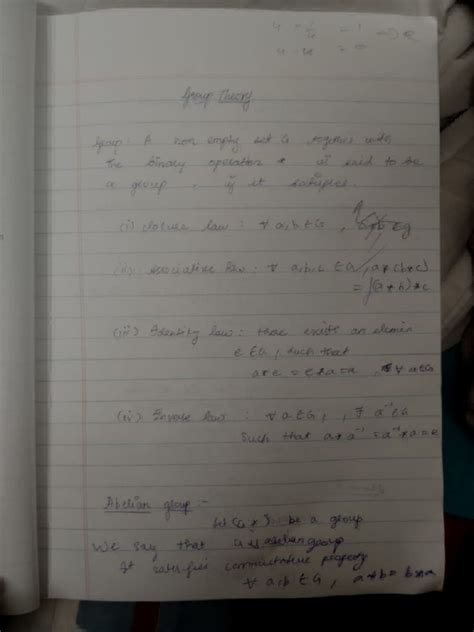 4 × 1/4 = 1
4 - 4 = 0
Group Theory
Group: A non empty set G together with
the binary operation * is said to be
a group, if it satisfies.
(i) closure law : ∀ a,b ∈ G , a*b ∈ g
(ii) Associative law : ∀ a,b,c ∈ G , a*(b*c)
= (a*b)*c
(iii) Identity law : there exists an elemen
e ∈ G, such that
a*e = e*a = a , ∀ a ∈ G
(iv) Inverse law : ∀ a ∈ G , ∃ a⁻¹ ∈ G
Such that a*a⁻¹ = a⁻¹*a = e
Abelian group :-
let (G *) be a group
We say that is abelian group
It satisfies commutative property
∀ a,b ∈ G , a*b = b*a